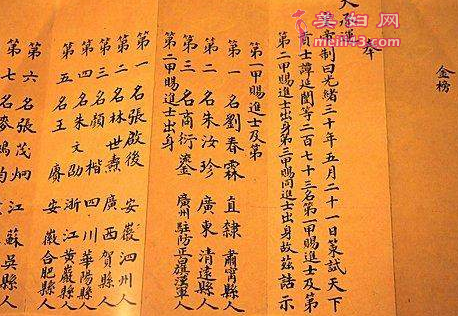 美妇网
金榜
奉
天承運
皇帝制曰光緒三十年五月二十一日策試天下
貢士譚延闓等二百七十三名第一甲賜進士及第
第二甲賜進士出身第三甲賜同進士出身故茲誥示
第一甲賜進士及第
第一名劉春霖 直隸 肅寧縣人
第二名朱汝珍 廣東 清遠縣人
第三名商衍鎏 廣州駐防正旗漢軍人
第二甲賜進士出身
第一名張啟後 安徽 泗州人
第二名林世燾 廣西 賀縣人
第三名顏楷 四川 華陽縣人
第四名朱文劭 浙江 黃巖縣人
第五名王賡 安徽 合肥縣人
第六名張茂炯 江蘇吳縣人
第七名麥鴻鈞